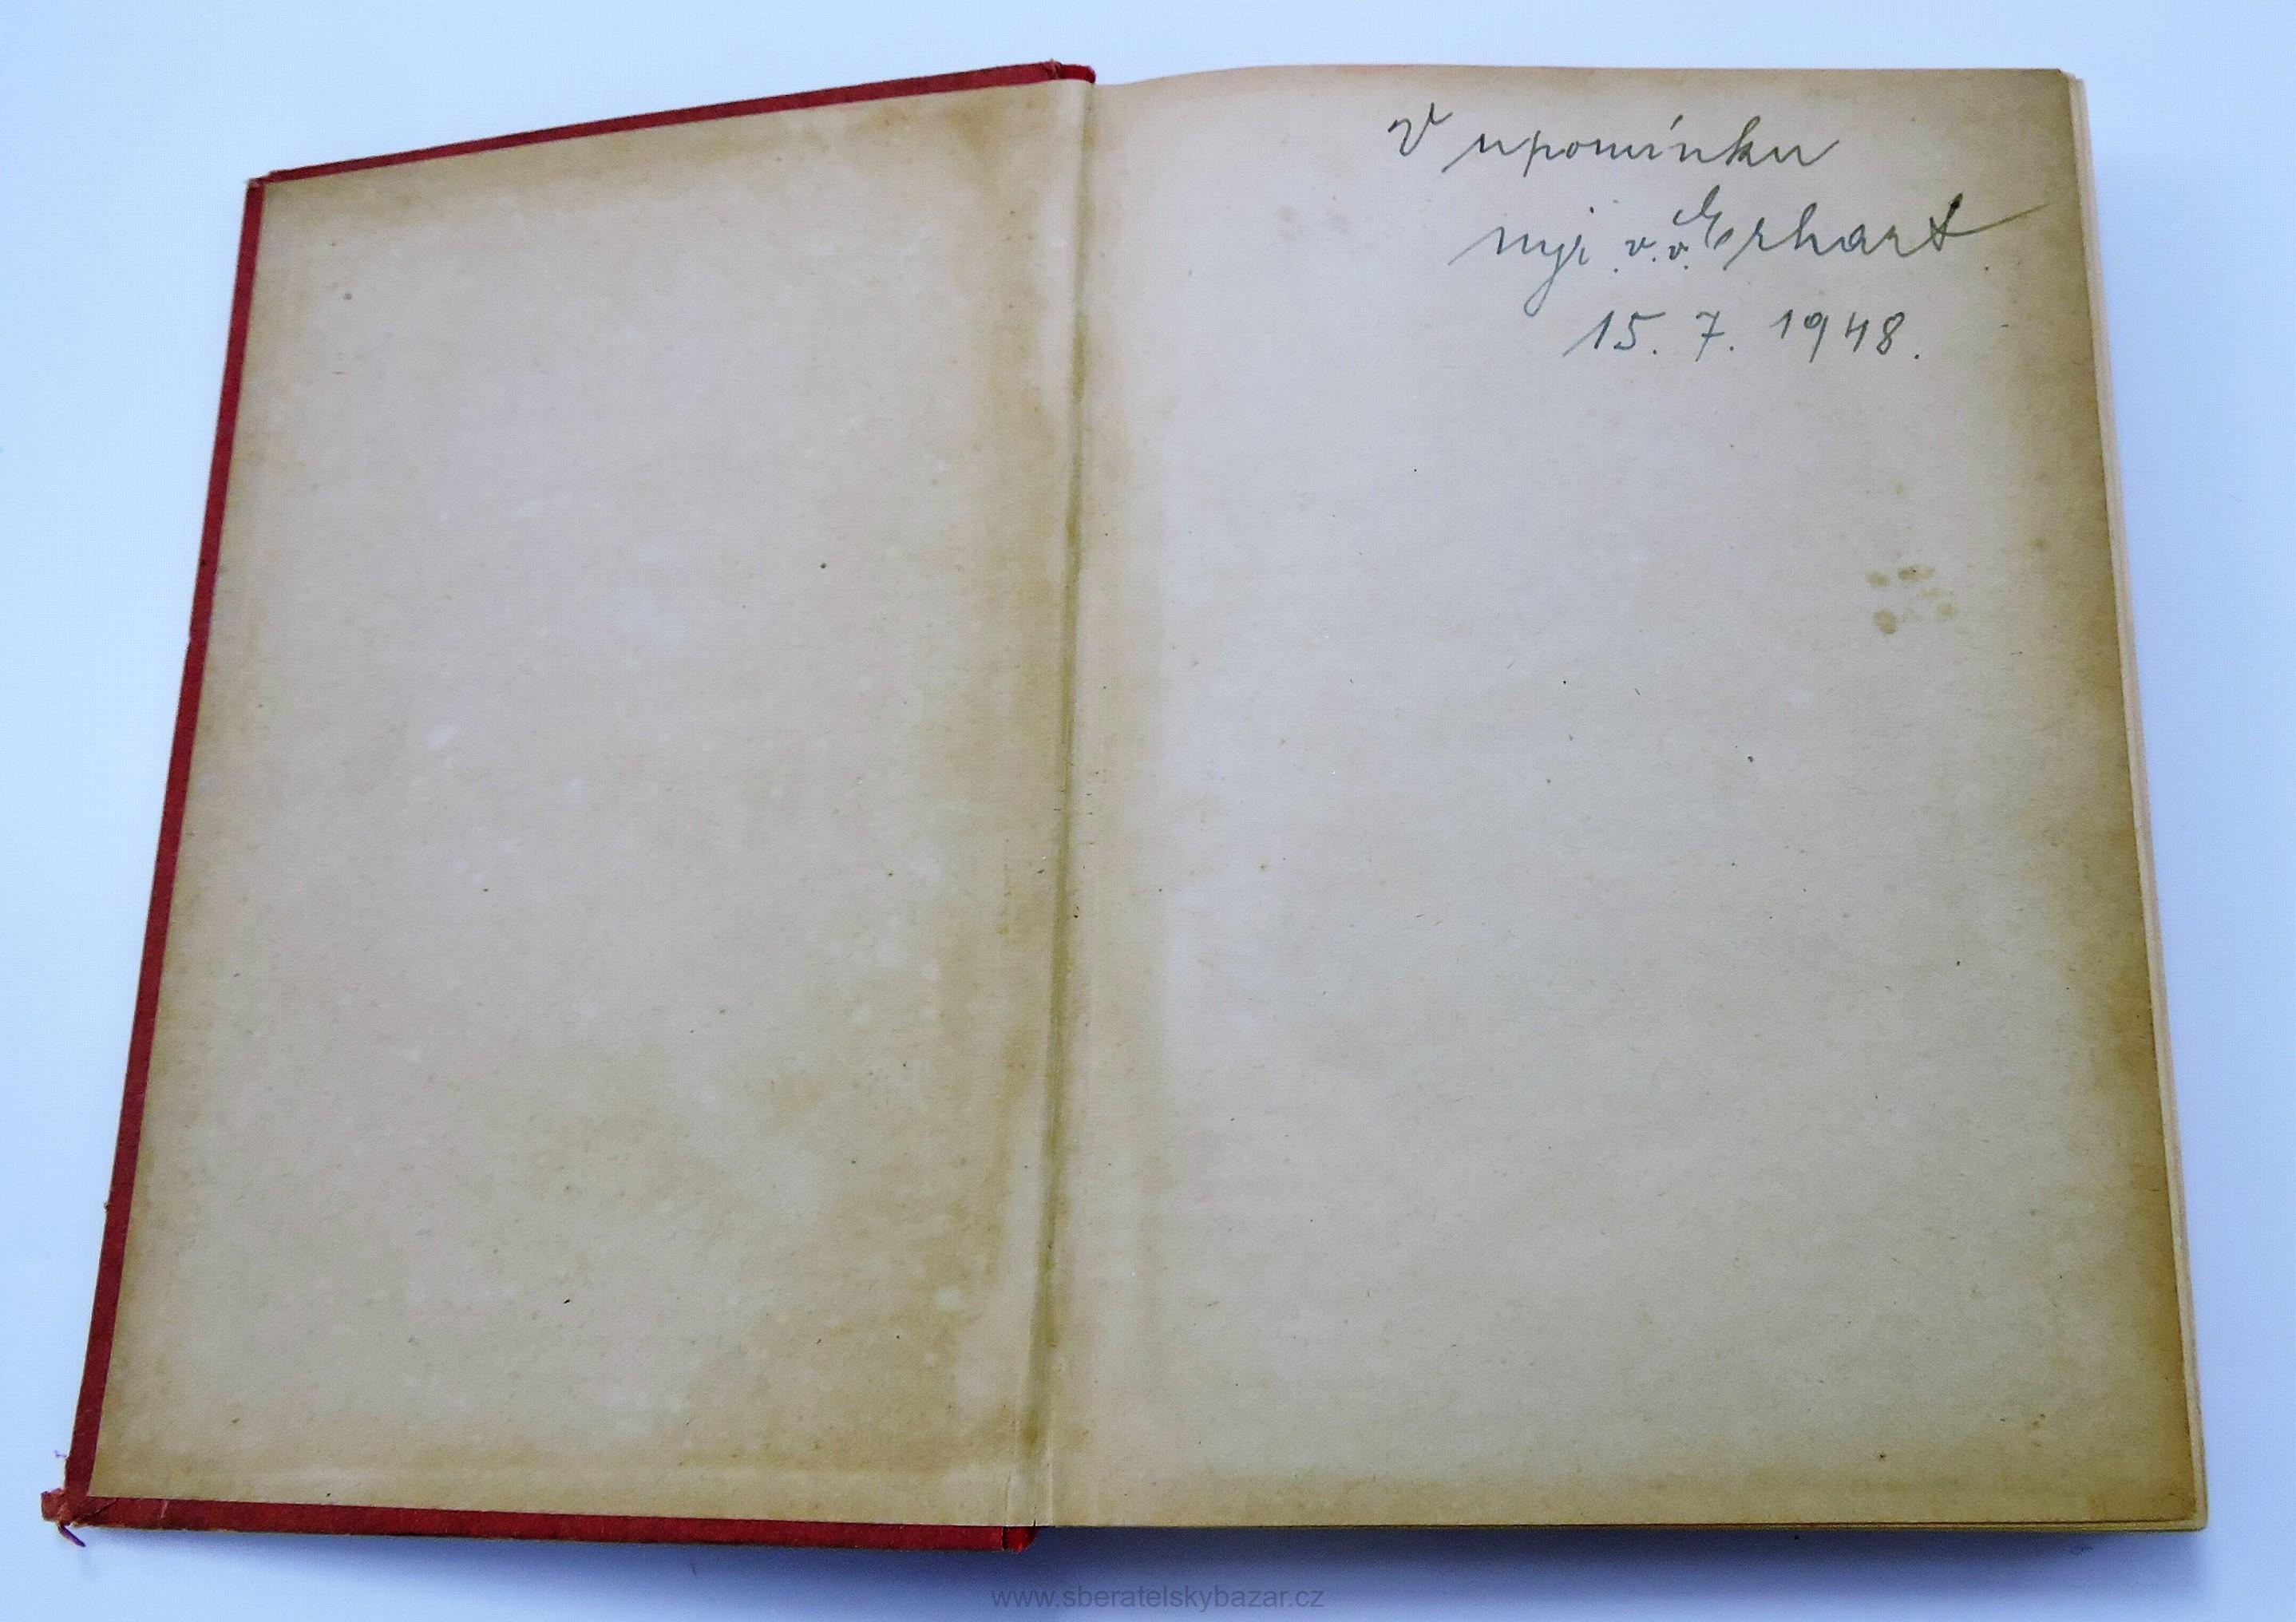 V upomínku
mjr. v. v. Erhart.
15. 7. 1948.
www.sberatelskybazar.cz